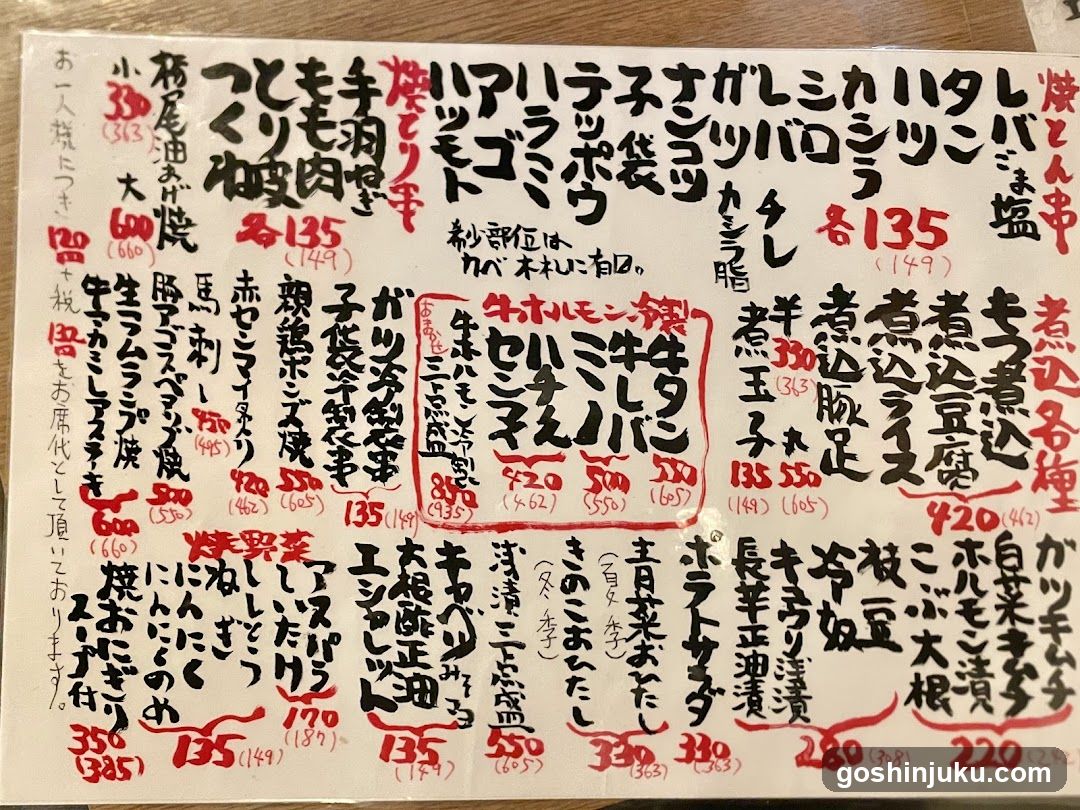 焼とん串
レバごま塩
タン
ハツ
カシラ
シロ
レバ チレ
ガツ カシラ脂
ナンコツ
子袋
テッポウ
ハラミ
アゴ
ハツモト
各135
(149)
希少部位は
カベ木札に有口。
焼とり串
手羽ねぎ
もも肉
とり皮
つくね
各135
(149)
栃尾油あげ焼
小330
(363)
大600
(660)
煮込各種
もつ煮込
煮込豆腐
煮込ライス
420(462)
煮込豚足
半330
(363)
丸550
(605)
煮玉子
135
(149)
牛ホルモン冷製
牛タン
550
(605)
牛レバ
ミノ
500
(550)
ハチノス
センマイ
420
(462)
おまかせ
牛ホルモン冷製
三点盛
850
(935)
ガツ冷製串
子袋冷製串
135(149)
親鶏ポンズ焼
550
(605)
赤センマイタタリ
420
(462)
馬刺し
450
(495)
豚アゴスペアリブ焼
500
(550)
生ラムランプ焼
牛カミレアステーキ
600
(660)
ガツキムチ
白菜キムチ
ホルモン漬
こぶ大根
220(242)
枝豆
冷奴
キュウリ浅漬
長芋正油漬
280(308)
ポテトサラダ
330
(363)
青菜おひたし
(夏季)
きのこおひたし
(冬季)
330
(363)
浅漬三点盛
550
(605)
キャベツみそマヨ
大根酢正油
エシャレット
135
(149)
焼野菜
アスパラ
しいたけ
170
(187)
ししとう
ねぎ
にんにく
にんにくのめ
135(149)
焼おにぎり
スープ付
350
(385)
お一人様につき120円+税132円をお席代として頂いております。
goshinjuku.com